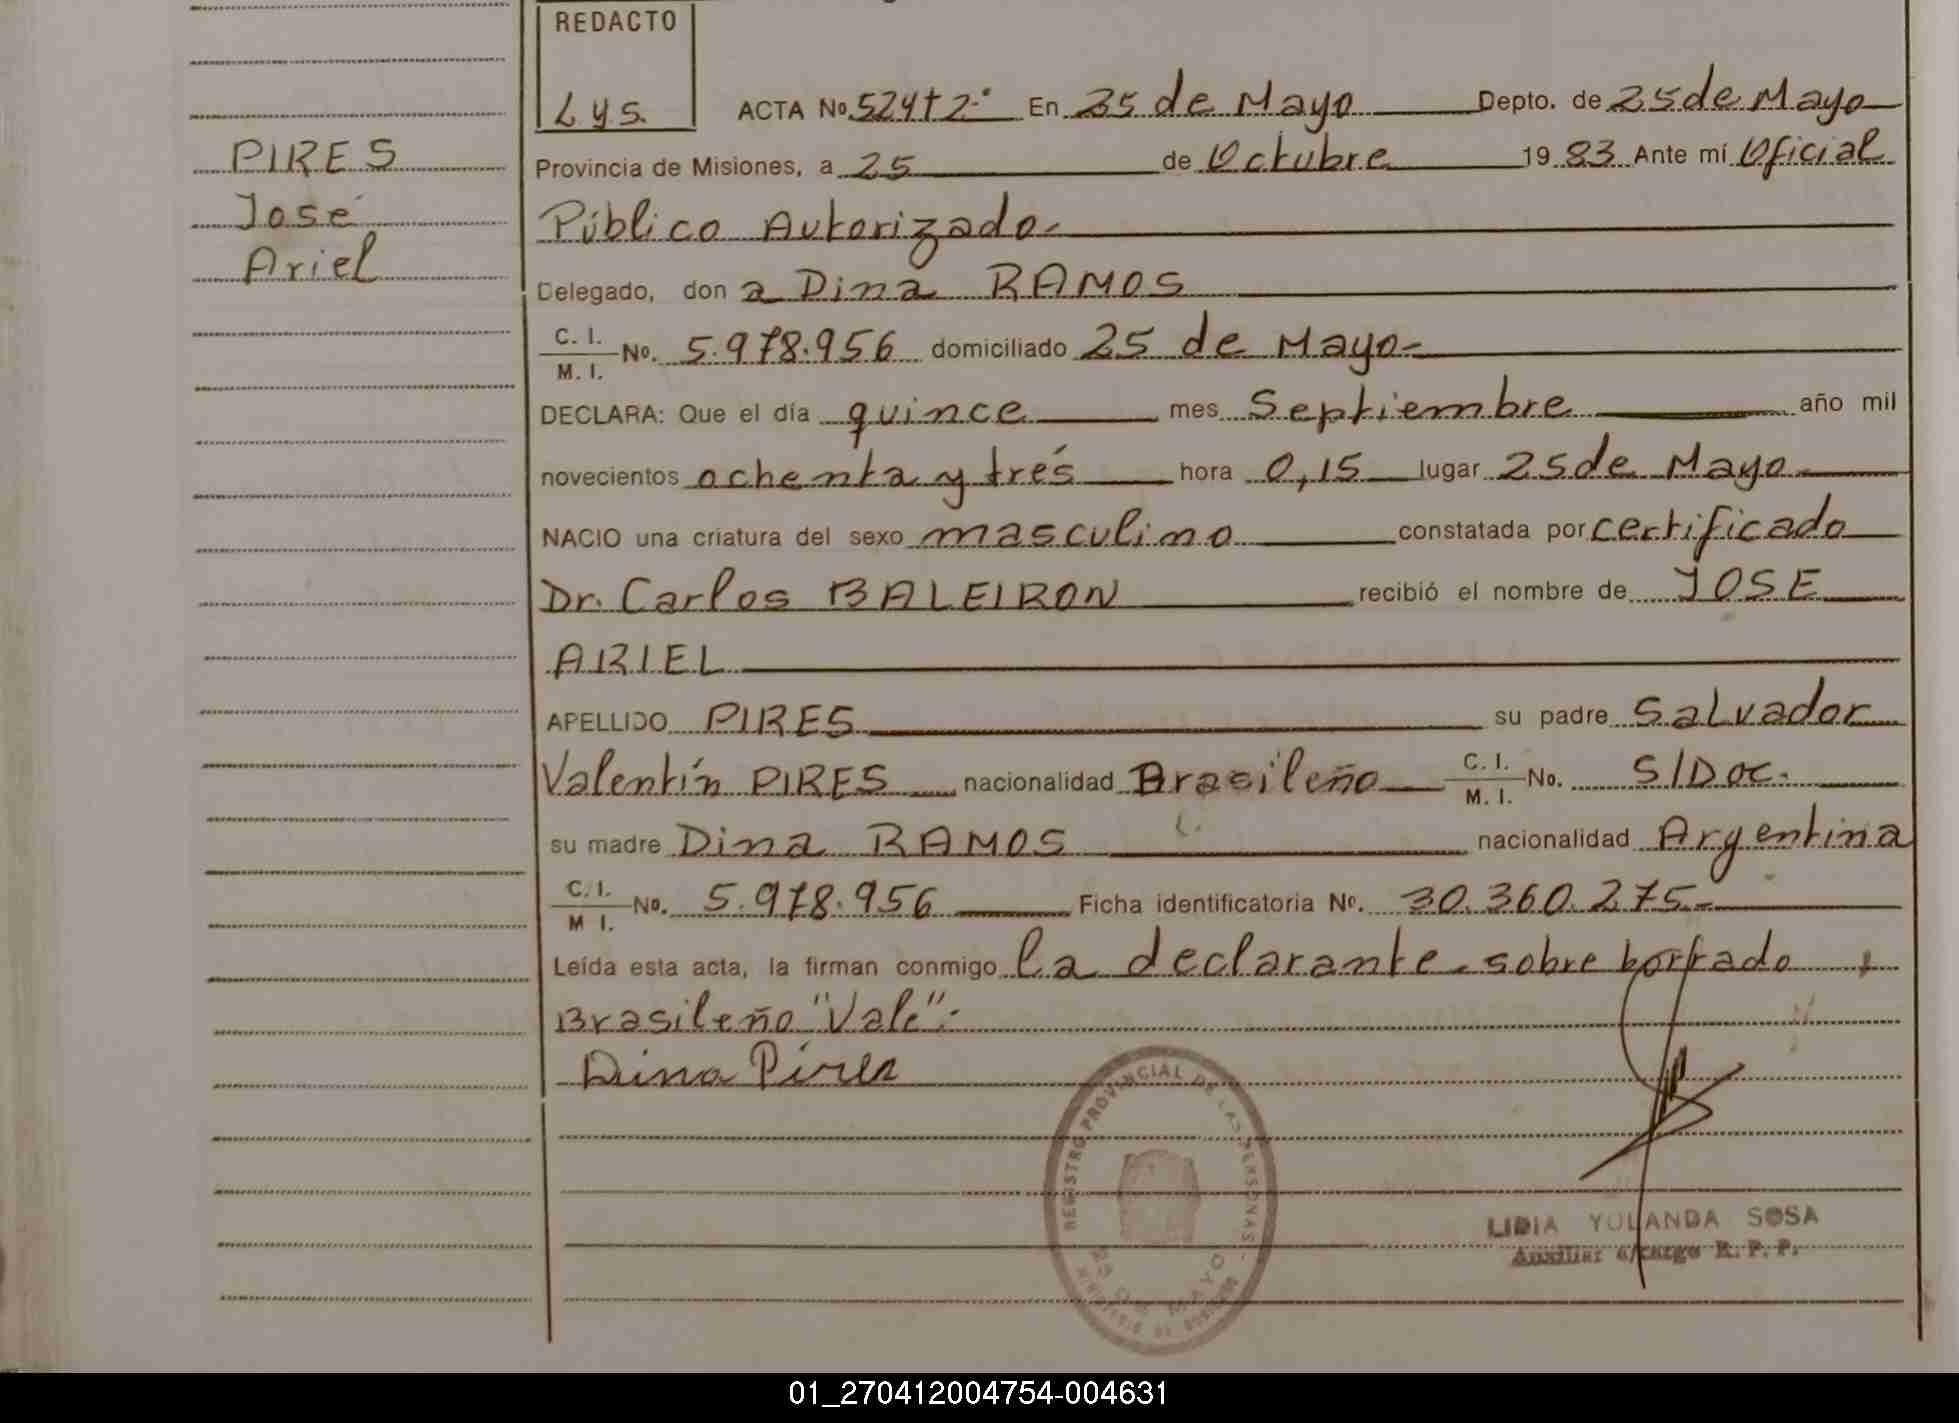 REDACTO
Lys.
ACTA No. 524 t 2.° En 25 de Mayo Depto. de 25 de Mayo
PIRES
José
Ariel
Provincia de Misiones, a 25 de Octubre 19 83 Ante mí Oficial
Público Autorizado.
Delegado, don a Dina RAMOS
C. I.
M. I. No. 5.978.956 domiciliado 25 de Mayo-
DECLARA: Que el día quince mes Septiembre año mil
novecientos ochenta y trés hora 0,15 lugar 25 de Mayo
NACIO una criatura del sexo masculino constatada por certificado
Dr. Carlos BALEIRON recibió el nombre de JOSE
ARIEL
APELLIDO PIRES su padre Salvador
Valentín PIRES nacionalidad Brasileño C. I. M. I. No. S/Doc.
su madre Dina RAMOS nacionalidad Argentina
C. I.
M I. No. 5.978.956 Ficha identificatoria No. 30.360.275-
Leída esta acta, la firman conmigo la declarante. sobre borrado
Brasileño "Vale":
Dina Pires
REGISTRO PROVINCIAL DE LAS PERSONAS
25 DE MAYO
LIDIA YOLANDA SOSA
Auxiliar a/cargo R. P. P.
01_270412004754-004631